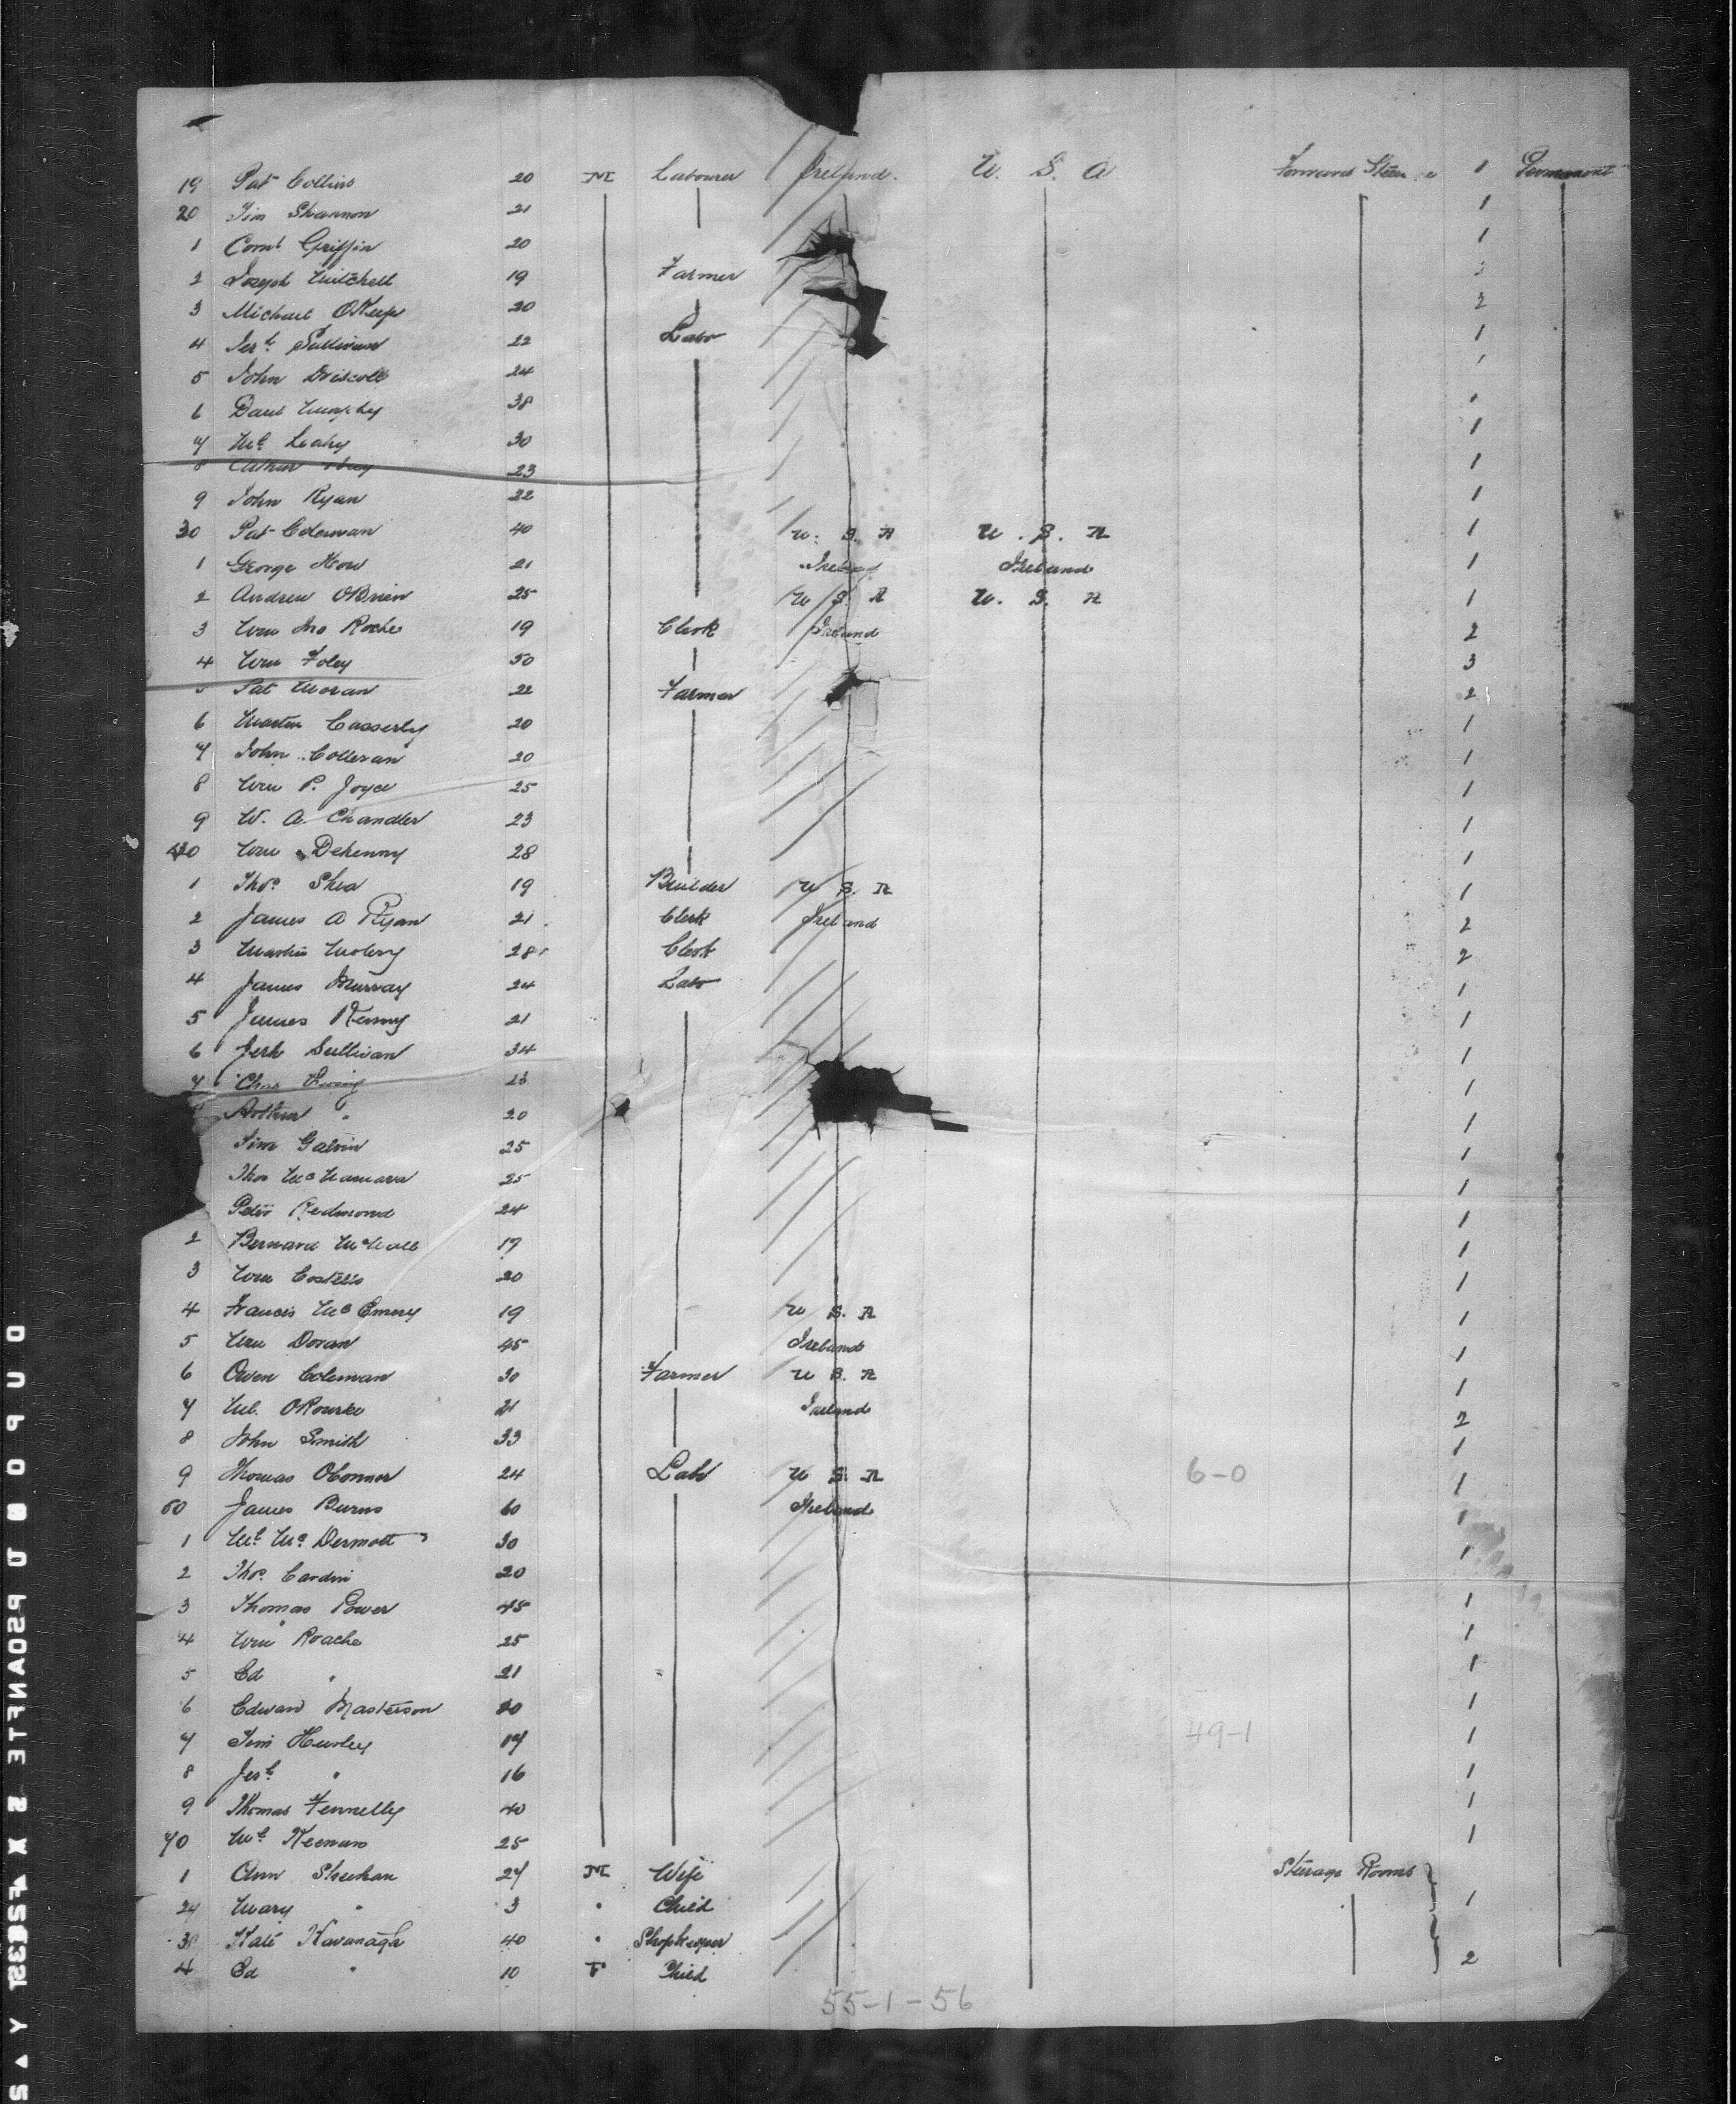 19 Pat Collins 20 M Labourer Ireland. U. S. A Forward 1 Permanent
20 Tim Shannon 21 1
1 Corns Griffin 20 1
2 Joseph Mitchell 19 Farmer
3 Michael OKeefe 20 2
4 Jerh Sullivan 22 Labr 1
5 John Driscoll 24 1
6 Danl Murphy 38 1
7 Ml Leahy 30 1
8 Arthur 23 1
9 John Ryan 22 1
30 Pat Coleman 40 U. S. A U. S. A 1
1 George How 21 Ireland Ireland 1
2 Andrew OBrien 25 U S. A U. S. A 1
3 Wm Jno Roche 19 Clerk Ireland 2
4 Wm Foley 50 3
5 Pat Moran 22 Farmer 2
6 Martin Casserly 20 1
7 John Colleran 20 1
8 Wm P. Joyce 25 1
9 W. A. Chandler 23 1
40 Wm Dekenny 28 1
1 Thos. Shea 19 Builder U S. A 1
2 James A Ryan 21 Clerk Ireland 2
3 Martin 28 Clerk 2
4 James Murray 24 Labr 1
5 James Kenny 21 1
6 Jerh Sullivan 34 1
7 Chas 23 1
Arthur " 20 1
Tim Galvin 25 1
Thos McNamara 25 1
Peter Redmond 24 1
2 Bernard McNall 17 1
3 Wm Costello 20 1
4 Francis McEmery 19 U S. A 1
5 Wm Doran 45 Ireland 1
6 Owen Coleman 30 Farmer U S. A 1
7 Ml. ORourke 21 Ireland 2
8 John Smith 33 1
9 Thomas OConnor 24 Labr U S. A 6-0 1
60 James Burns 60 Ireland 1
1 Ml McDermott 30 1
2 Thos. Cardin 20 1
3 Thomas Power 45 1
4 Wm Roache 25 1
5 Ed " 21 1
6 Edward Masterson 20 1
7 Tim Hurley 17 49-1 1
8 Jerh " 16 1
9 Thomas Fennelly 40 1
70 Ml Keenan 25 1
1 Ann Sheehan 27 M Wife Steerage Rooms
2 Mary " 3 " Child 1
3 Kate Kavanagh 40 " Shopkeeper
4 Ed " 10 F Child 2
55-1-56